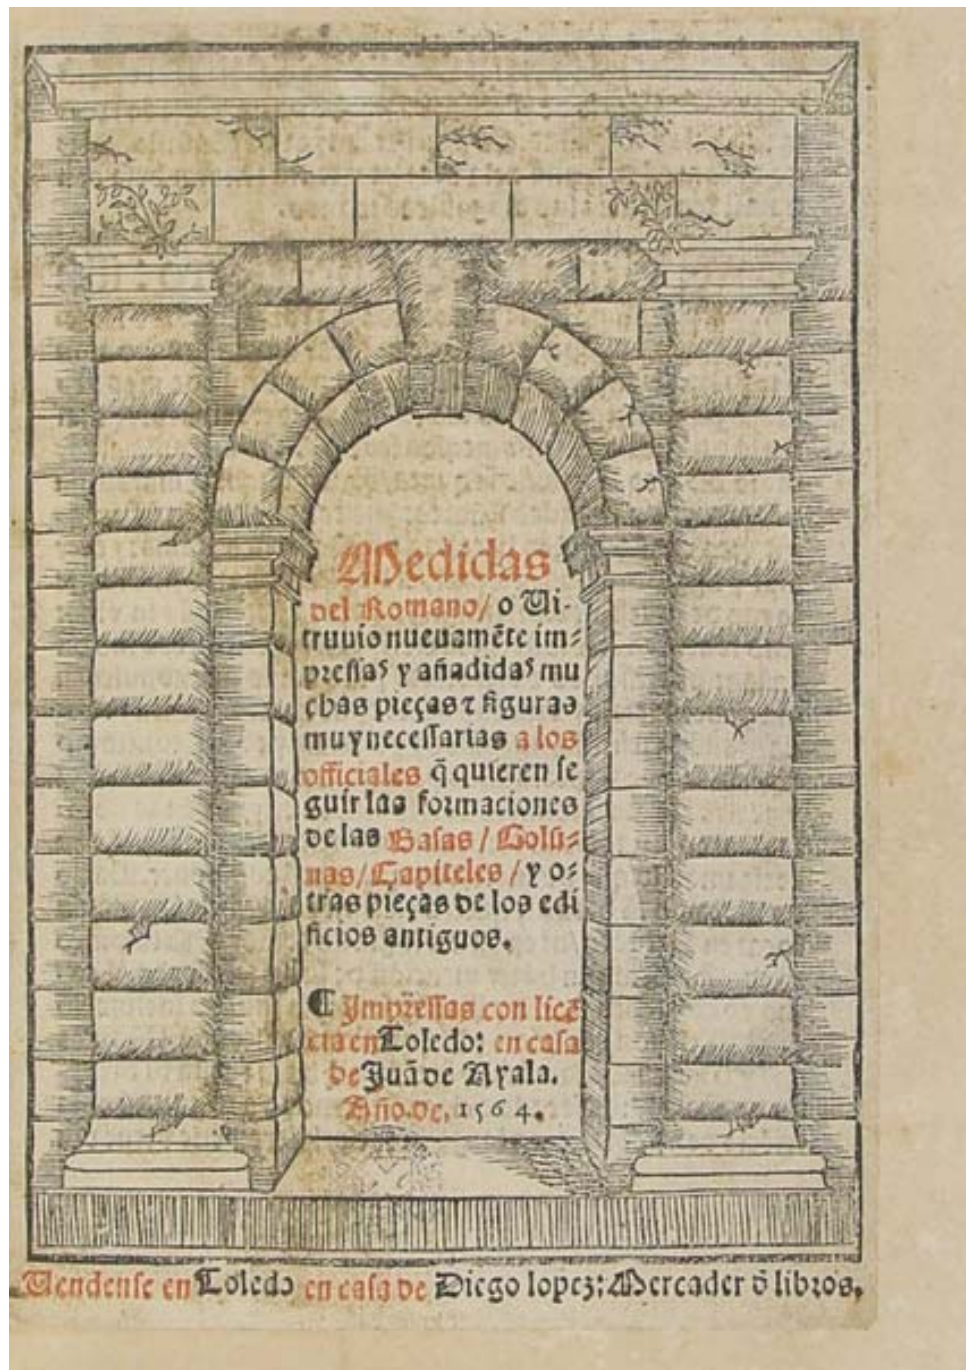 Medidas
del Romano/ o Ui-
truuio nueuamẽte im-
pressas y añadidas mu
chas pieças ⁊ figuras
muy necessarias a los
officiales q̃ quieren se
guir las formaciones
de las Basas / Colu-
nas/ Capiteles / y o-
tras pieças de los edi
ficios antiguos.
Impressas con licẽ
cia en Toledo: en casa
de Juã de Ayala.
Año. de. 1564.
Uendense en Toledo en casa de Diego lopez: Mercader õ libros.